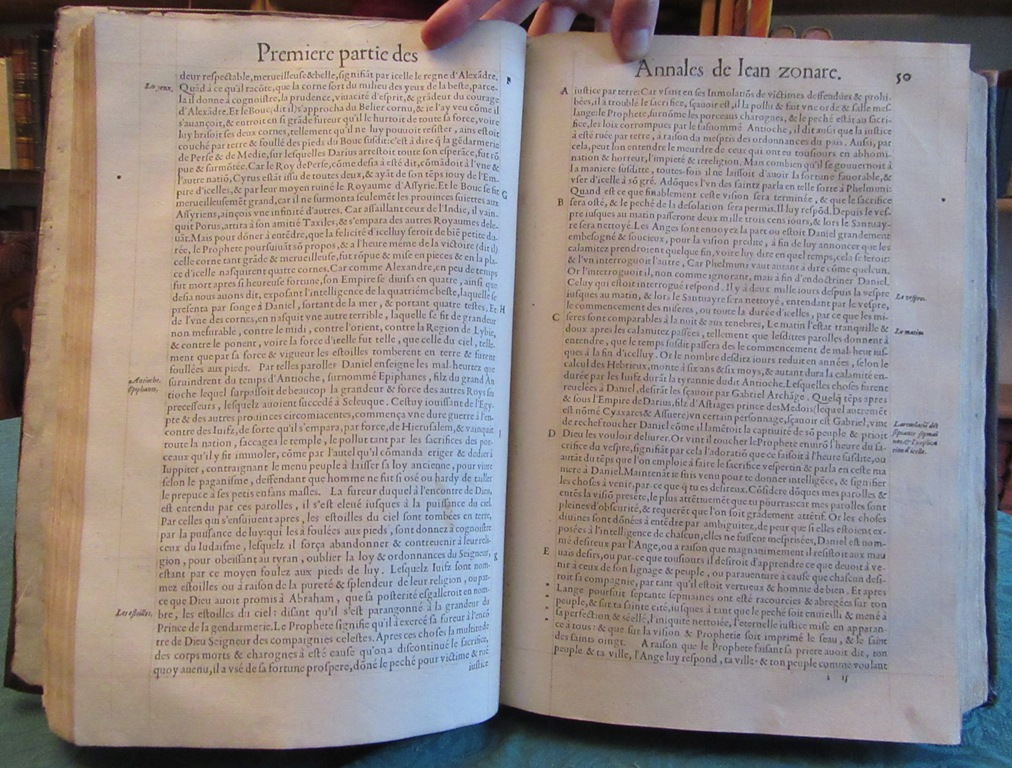 Premiere partie des
deur respectable, merueilleuse & belle, signifiāt par icelle le regne d'Alexādre.
Les yeux.
Quād à ce qu'il racōte, que la corne sort du milieu des yeux de la beste, par ce-
la il donne à cognoistre, la prudence, viuacité d'esprit, & grādeur du courage
d'Alexādre. Et le Bouc (dit il) s'approcha du Belier cornu, & ie l'ay veu cōme il
s'auançoit, & couroit en si grāde fureur qu'il le hurtoit de toute sa force, voire
luy brisoit ses deux cornes, tellement qu'il ne luy pouuoit resister, ains estoit
couché par terre & foullé des pieds du Bouc susdit: c'est à dire q̄ la gēdarmerie
de Perse & de Medie, sur lesquelles Darius arrestoit toute son esperāce, fut rō-
pue & surmōtée. Car le Roy de Perse, cōme desia à esté dit, cōmādoit à l'vne &
l'autre natiō, Cyrus estāt issu de toutes deux, & ayāt de son tēps iouy de l'Em-
pire d'icelles, & par leur moyen ruiné le Royaume d'Assyrie. Et le Bouc se fit
G
merueilleusemēt grand, car il ne surmonta seulemēt les prouinces suiettes aux
Assyriens, ainçois vne infinité d'autres. Car assaillant ceux de l'Indie, il vain-
quit Porus, attira à son amitié Taxiles, & s'empara des autres Royaumes dele-
uāt. Mais pour dōner à entēdre, que la felicité d'icelluy seroit de biē petite du-
rée, le Prophete poursuiuāt sō propos, & a l'heure méme de la victoire (dit il)
celle corne tant grāde & merueilleuse, fut rōpue & mise en pieces & en la pla-
ce d'icelle nasquirent quatre cornes. Car comme Alexandre, en peu de temps
fut mort apres si heureuse fortune, son Empire se diuisa en quatre, ainsi que
desia nous auons dit, exposant l'intelligence de la quatriéme beste, laquelle se
presenta par songe à Daniel, sortant de la mer, & portant quatre testes. Et
H
de l'vne des cornes, en nasquit vne autre terrible, laquelle se fit de grandeur
non mesurable, contre le midi, contre l'orient, contre la Region de Lybie,
& contre le ponent, voire la force d'icelle fut telle, que celle du ciel, telle-
ment que par sa force & vigueur les estoilles tomberent en terre & furent
foullées aux pieds. Par telles paroles Daniel enseigne les mal-heurtez que
Antioche,
Epiphanes.
suruindrent du temps d'Antioche, surnommé Epiphanes, filz du grand An
tioche lequel surpassoit de beaucoup la grandeur & force des autres Roys sa
precesseurs, lesquelz auoient succedé à Seleuque. Cestuy iouissant de l'Egy-
pte & des autres prouinces circomiacentes, commença vne dure guerre à l'en-
contre des Iuifz, de sorte qu'il s'empara, par force, de Hierusalem, & vainquit
toute la nation, saccagea le temple, le pollut tant par les sacrifices des por-
ceaux qu'il y fit immoler, cōme par l'autel qu'il cōmanda eriger & dedier à
Iuppiter, contraignant le menu peuple à laisser sa loy ancienne, pour viure
selon le paganisme, deffendant que homme ne fut si osé ou hardy de tailler
le prepuce à ses petis enfans masles. La fureur duquel à l'encontre de Dieu,
est entendu par ces paroles, il s'est eleué iusques à la puissance du ciel.
Par celles qui s'ensuiuent apres, les estoilles du ciel sont tombées en terre,
par la puissance de luy: qui les à foulées aux pieds, sont donnez à cognoistre
ceux du Iudaisme, lesquelz il força abandonner & contreuenir à leur reli-
gion, pour obeissant au tyran, oublier la loy & ordonnances du Seigneur,
estant par ce moyen foulez aux pieds de luy. Lesquelz Iuifz sont nom-
mez estoilles ou à raison de la pureté & splendeur de leur religion, ou par-
ce que Dieu auoit promis à Abraham, que sa posterité esgalleroit en nom-
Les estoilles.
bre, les estoilles du ciel: disant qu'il s'est parangonné à la grandeur du
Prince de la gendarmerie. Le Prophete signifie qu'il à exercé sa fureur à l'encō
tre de Dieu Seigneur des compaignies celestes. Apres ces choses la multitude
des corps morts & charognes à esté cause qu'on a discontinué le sacrifice,
quoy auenu, il a vsé de sa fortune prospere, dōné le peché pour victime & rué
iustice
Annales de Iean zonare.
50
A
iustice par terre: Car vsant en ses Immolatiōs de victimes deffendues & prohi-
bées, il à troublé le sacrifice, sçauoir est, il la pollu & fait vne orde & salle mes-
lange: le Prophete, surnōme les porceaux charognes, & le peché estāt au sacri-
fice, les loix corrompues par le susnommé Antioche, il dit aussi que la iustice
à esté ruée par terre, à raison du mespris des ordonnances du pais. Aussi, par
cela, peut lon entendre le meurdre de ceux qui ont eu tousiours en abhomi-
nation & horreur, l'impieté & irreligion. Man combien qu'il se gouuernoit à
la maniere susdite, toutes-fois il ne laissoit d'auoir la fortune fauorable, &
vser d'icelle à sō gré. Adōques l'vn des saintz parla en telle sorte à Phelmuni:
Quand est ce que finablement ceste vision sera terminée, & que le sacrifice
B
sera osté, & le peché de la desolation sera permis. Il luy respōd. Depuis le ves-
pre iusques au matin passeront deux mille trois cens iours, & lors le Santuay-
re sera nettoyé. Les Anges sont enuoyez la part ou estoit Daniel grandement
embesogné & soucieux, pour la vision predite, à fin de luy annoncer que les
calamitez prendroient quelque fin, voire luy dire en quel temps, cela se feroit:
& l'vn interroguoit l'autre, Car Phelmuni vaut autant à dire cōme quelcun.
Or l'interroguoit il, non comme ignorant, mais à fin d'endoctriner Daniel.
Celuy qui estoit interrogué respond. Il y à deux mille iours despuis la vespre
La vespre.
iusques au matin, & lors le Santuayre sera nettoyé, entendant par le vespre,
le commencement des miseres, ou toute la durée d'icelles, par ce que les mi-
C
seres sont comparables à la nuit & aux tenebres, Le matin l'estat tranquille &
Le matin.
doux apres les calamitez passées, tellement que lesdittes parolles donnent à
entendre, que le temps susdit passera des le commencement de mal-heur ius-
ques à la fin d'icelluy. Or le nombre desditz iours reduit en années, selon le
calcul des Hebrieux, monte à six ans & six moys, & autant dura la calamité en-
durée par les Iuifz durāt la tyrannie dudit Antioche. Lesquelles choses furent
reuelées à Daniel, desirāt les sçauoir par Gabriel Archāge. Quelq̄ tēps apres
& sous l'Empire de Darius, filz d'Astiages prince des Medois (lequel autremēt
La reuelatiō des
septante sepmai
nes, & l'explica
tion d'icelle.
est nōmé Cyaxares & Assuere) vn certain personnage, sçauoir est Gabriel, vint
de rechef toucher Daniel cōme il lamētoit la captiuité de sō peuple & prioit
D
Dieu les vouloir deliurer. Or vint il toucher le Prophete enuirō l'heure du sa-
crifice du vespre, signifiāt par cela l'adoratiō que ce faisoit à l'heure susdite, ou
autāt du tēps que l'on emploie à faire le sacrifice vespertin & parla en ceste ma
niere à Daniel. Maintenāt ie suis venu pour te donner intelligēce, & signifier
les choses à venir, par-ce que tu es desireux. Cōsidere dōques mes paroles &
entēs la visiō presēte, le plus attētiuemēt que tu pourras: car mes paroles sont
pleines d'obscurité, & requerēt que l'on soit gradement attētif. Or les choses
diuines sont dōnées à entēdre par ambiguitez, de peur que si elles estoient ex-
posées à l'intelligence de chascun, elles ne fussent mesprisées, Daniel est nom-
mé desireux par l'Ange, ou à raison que magnanimement il resistoit aux mau
E
uais desirs, ou par-ce que tousiours il desiroit d'apprendre ce que deuoit à ve-
nir à ceux de son lignage & peuple, ou parauenture à cause que chascun desi-
roit sa compagnie, par tant qu'il estoit vertueux & homme de bien. Et apres
Lange poursuit septante sepmaines ont esté racourcies & abregées sur ton
peuple, & sur ta sainte cité, iusques à tant que le peché soit enuieilli, & mené a
sa perfection & scellé, l'iniquité nettoiée, l'eternelle iustice mise en apparan-
ce à tous: & que sur la vision & Prophetie soit imprimé le seau, & le saint
des saints oingt. A raison que le Prophete faisant sa priere auoit dit, ton
peuple & ta ville, l'Ange luy respond, ta ville & ton peuple comme voulant
i ij